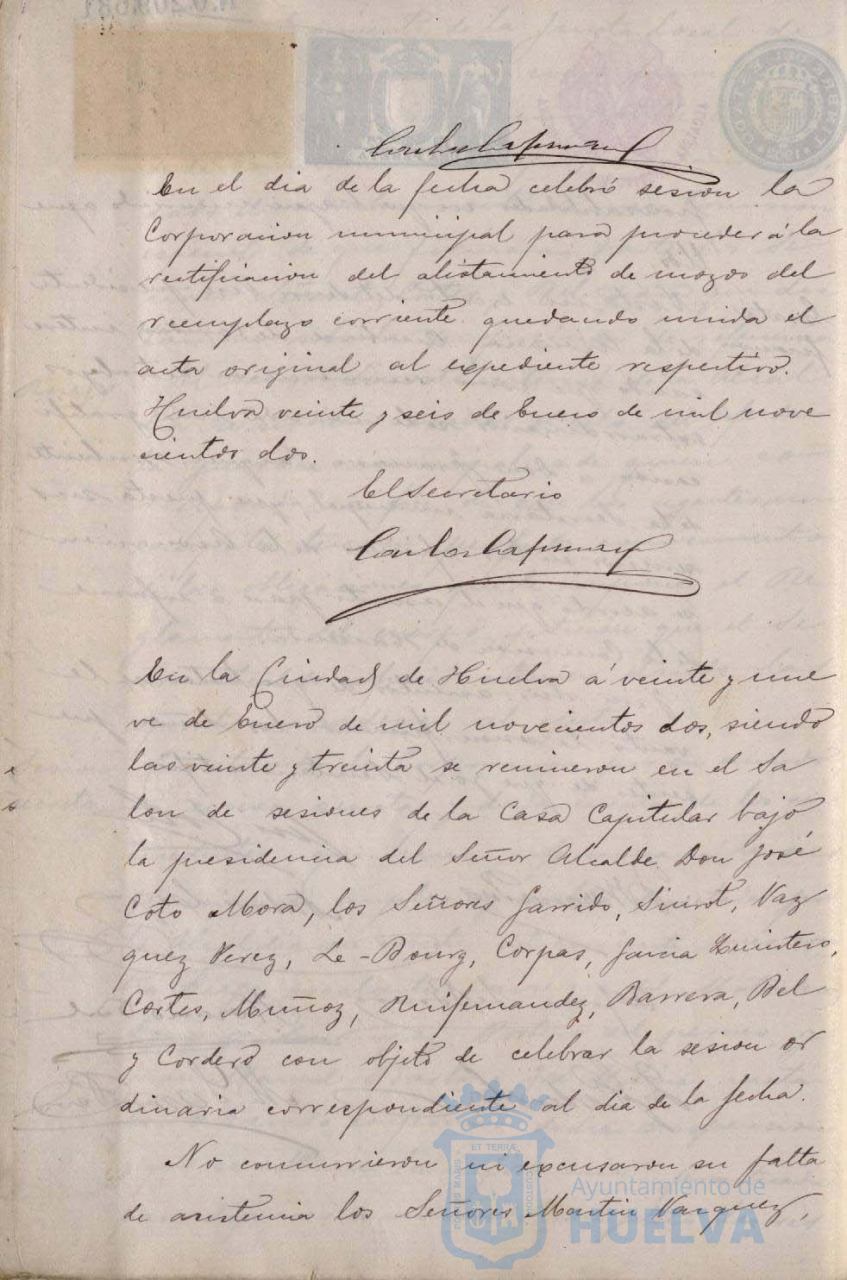 Carlos Capmany
En el dia de la fecha celebró sesion la
Corporacion municipal para proceder á la
rectificacion del alistamiento de mozos del
reemplazo corriente quedando unida el
acta original al expediente respectivo.
Huelva veinte y seis de Enero de mil nove
cientos dos.
El Secretario
Carlos Capmany
En la Ciudad de Huelva á veinte y nue
ve de Enero de mil novecientos dos, siendo
las veinte y treinta se reunieron en el Sa
lon de sesiones de la Casa Capitular bajo
la presidencia del Señor Alcalde Don José
Coto Mora, los Señores Garrido, Siurot, Vaz
quez Perez, Le-Bourg, Corpas, Garcia Quintero,
Cortes, Muñoz, Ruifernandez, Barrera, Bel
y Cordero con objeto de celebrar la sesion or
dinaria correspondiente al dia de la fecha.
No concurrieron ni excusaron su falta
de asistencia los Señores Martin Vazquez,
Ayuntamiento de
HUELVA